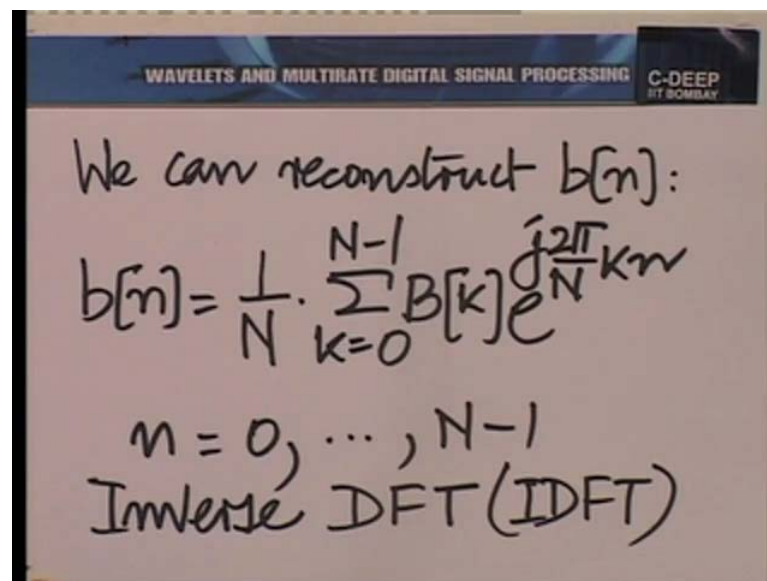 WAVELETS AND MULTIRATE DIGITAL SIGNAL PROCESSING
C-DEEP
IIT BOMBAY
We can reconstruct b[n]:
b[n] = 1/N · Σ_{k=0}^{N-1} B[k] e^{j 2π/N kn}
n = 0, ..., N-1
Inverse DFT (IDFT)